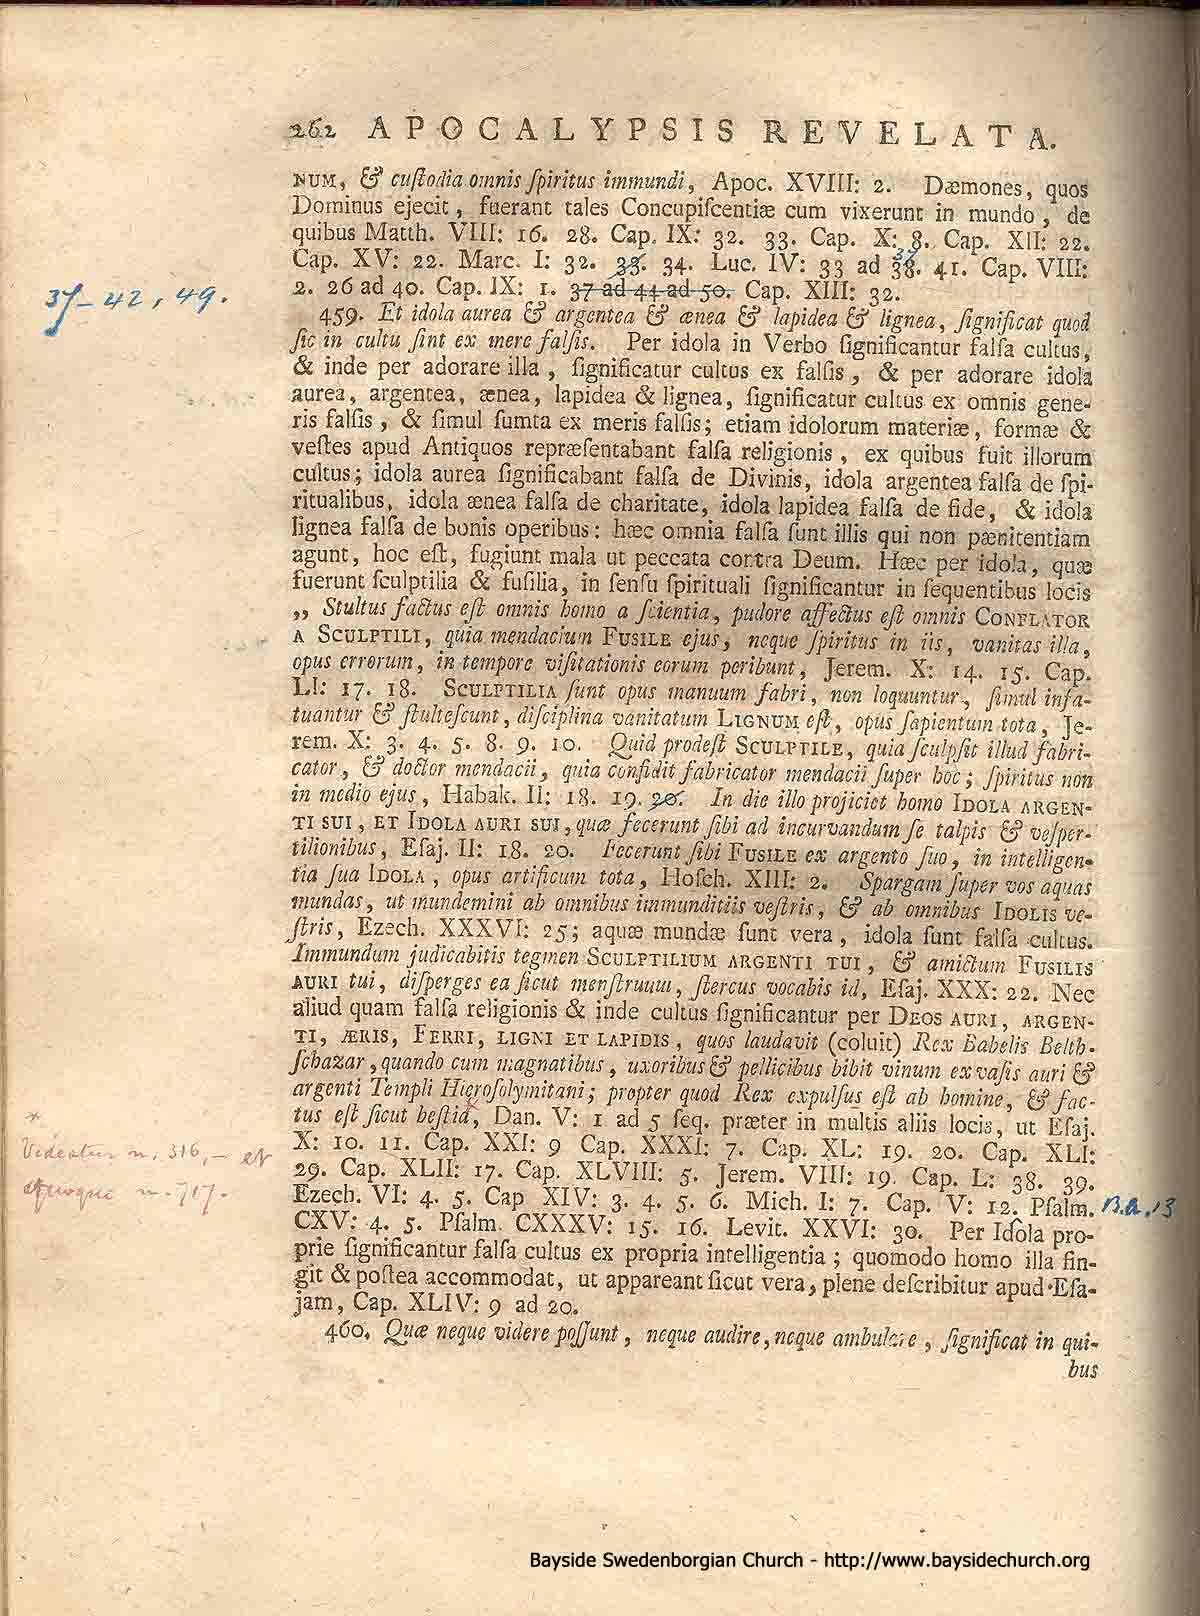 262 APOCALYPSIS REVELATA.
NUM, & cuſtodia omnis ſpiritus immundi, Apoc. XVIII: 2. Dæmones, quos
Dominus ejecit, fuerant tales Concupiſcentiæ cum vixerunt in mundo, de
quibus Matth. VIII: 16. 28. Cap. IX: 32. 33. Cap. X: 8. Cap. XII: 22.
37
Cap. XV: 22. Marc. I: 32. 33. 34. Luc. IV: 33 ad 38. 41. Cap. VIII:
2. 26 ad 40. Cap. IX: 1. 37 ad 44 ad 50. Cap. XIII: 32.
37-42, 49.
459. Et idola aurea & argentea & ænea & lapidea & lignea, ſignificat quod
ſic in cultu ſint ex mere falſis. Per idola in Verbo ſignificantur falſa cultus,
& inde per adorare illa, ſignificatur cultus ex falſis, & per adorare idola
aurea, argentea, ænea, lapidea & lignea, ſignificatur cultus ex omnis gene-
ris falſis, & ſimul ſumta ex meris falſis; etiam idolorum materiæ, formæ &
veſtes apud Antiquos repræſentabant falſa religionis, ex quibus fuit illorum
cultus; idola aurea ſignificabant falſa de Divinis, idola argentea falſa de ſpi-
ritualibus, idola ænea falſa de charitate, idola lapidea falſa de fide, & idola
lignea falſa de bonis operibus: hæc omnia falſa ſunt illis qui non pænitentiam
agunt, hoc eſt, fugiunt mala ut peccata contra Deum. Hæc per idola, quæ
fuerunt ſculptilia & fuſilia, in ſenſu ſpirituali ſignificantur in ſequentibus locis
„ Stultus factus eſt omnis homo a ſcientia, pudore affectus eſt omnis CONFLATOR
A SCULPTILI, quia mendacium FUSILE ejus, neque ſpiritus in iis, vanitas illa,
opus errorum, in tempore viſitationis eorum peribunt, Jerem. X: 14. 15. Cap.
LI: 17. 18. SCULPTILIA ſunt opus manuum fabri, non loquuntur, ſimul infa-
tuantur & ſtulteſcunt, diſciplina vanitatum LIGNUM eſt, opus ſapientum tota, Je-
rem. X: 3. 4. 5. 8. 9. 10. Quid prodeſt SCULPTILE, quia ſculpſit illud fabri-
cator, & doctor mendacii, quia confidit fabricator mendacii ſuper hoc; ſpiritus non
in medio ejus, Habak. II: 18. 19. 20. In die illo projiciet homo IDOLA ARGEN-
TI SUI, ET IDOLA AURI SUI, quæ fecerunt ſibi ad incurvandum ſe talpis & veſper-
tilionibus, Eſaj. II: 18. 20. Fecerunt ſibi FUSILE ex argento ſuo, in intelligen-
tia ſua IDOLA, opus artificum tota, Hoſch. XIII: 2. Spargam ſuper vos aquas
mundas, ut mundemini ab omnibus immunditiis veſtris, & ab omnibus IDOLIS ve-
ſtris, Ezech. XXXVI: 25; aquæ mundæ ſunt vera, idola ſunt falſa cultus.
Immundum judicabitis tegmen SCULPTILIUM ARGENTI TUI, & amictum FUSILIS
AURI tui, diſperges ea ſicut menſtruum, ſtercus vocabis id, Eſaj. XXX: 22. Nec
aliud quam falſa religionis & inde cultus ſignificantur per DEOS AURI, ARGEN-
TI, ÆRIS, FERRI, LIGNI ET LAPIDIS, quos laudavit (coluit) Rex Babelis Belth-
ſchazar, quando cum magnatibus, uxoribus & pellicibus bibit vinum ex vaſis auri &
argenti Templi Hieroſolymitani; propter quod Rex expulſus eſt ab homine, & fac-
tus eſt ſicut beſtia, Dan. V: 1 ad 5 ſeq. præter in multis aliis locis, ut Eſaj.
X: 10. 11. Cap. XXI: 9 Cap. XXXI: 7. Cap. XL: 19. 20. Cap. XLI:
29. Cap. XLII: 17. Cap. XLVIII: 5. Jerem. VIII: 19. Cap. L: 38. 39.
Ezech. VI: 4. 5. Cap XIV: 3. 4. 5. 6. Mich. I: 7. Cap. V: 12. Pſalm.
CXV: 4. 5. Pſalm. CXXXV: 15. 16. Levit. XXVI: 30. Per Idola pro-
prie ſignificantur falſa cultus ex propria intelligentia; quomodo homo illa fin-
git & poſtea accommodat, ut appareant ſicut vera, plene deſcribitur apud Eſa-
jam, Cap. XLIV: 9 ad 20.
*
Videatur n. 316, - et
quoque n. 717.
13
460. Quæ neque videre poſſunt, neque audire, neque ambulare, ſignificat in qui-
bus
Bayside Swedenborgian Church - http://www.baysidechurch.org